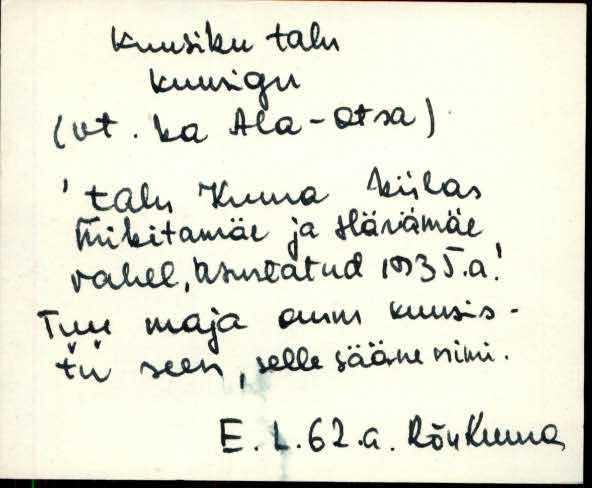 Kuusiku talu
kuusigu
(vt. ka Ala-otsa)
'talu Kuura külas
Mikitamäe ja Hävämäe
vahel, asustatud 1935.a.'
Tuu maja aum kuusis-
tü seen, selle sääne nimi.
E. L. 62.a. Rõu Kuura